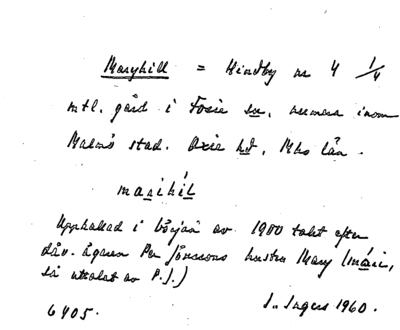 Maryhill = Hindby nr 4 1/4
mtl. gård i Fosie sn, numera inom
Malmö stad. Oxie hd, Mhs län.
marihíl
Uppkallad i början av 1900 talet efter
dåv. ägaren Per Jönssons hustru Mary (mári,
så uttalat av P.J.)
6405. I. Ingers 1960.